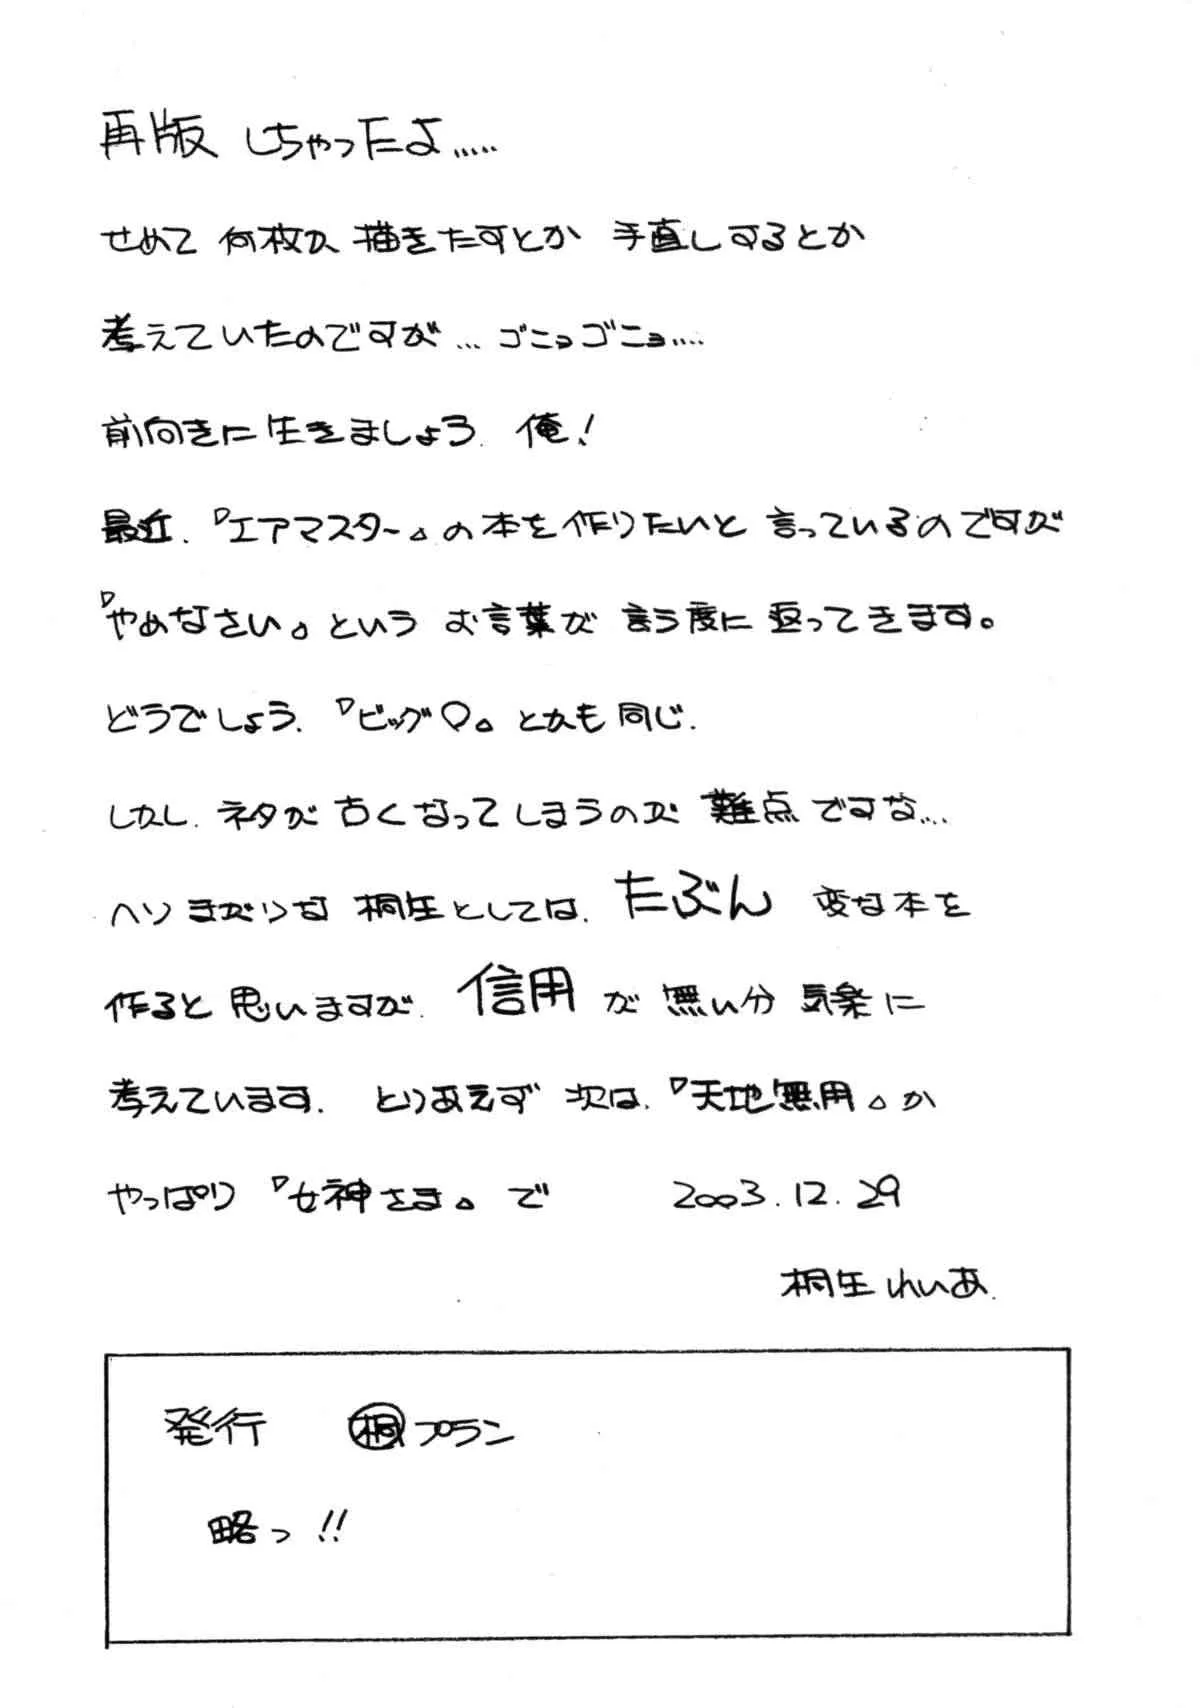 再版 しちゃったよ.....
せめて 何枚か 描きたすとか 手直しするとか
考えていたのですが... ゴニョゴニョ....
前向きに生きましょう. 俺!
最近.『エアマスター』の本を作りたいと 言っているのですが
『やめなさい』という お言葉が 言う度に 返ってきます。
どうでしょう.『ビッグ○』とかも同じ.
しかし. ネタが 古くなってしまうのが 難点ですな...
ヘソまがりな 桐生としては. たぶん 変な本を
作ると思いますが. 信用が 無い分 気楽に
考えています. とりあえず 次は.『天地無用』か
やっぱり『女神さま』で 2003.12.29
桐生れいあ.
発行 ㊞プラン
略っ!!